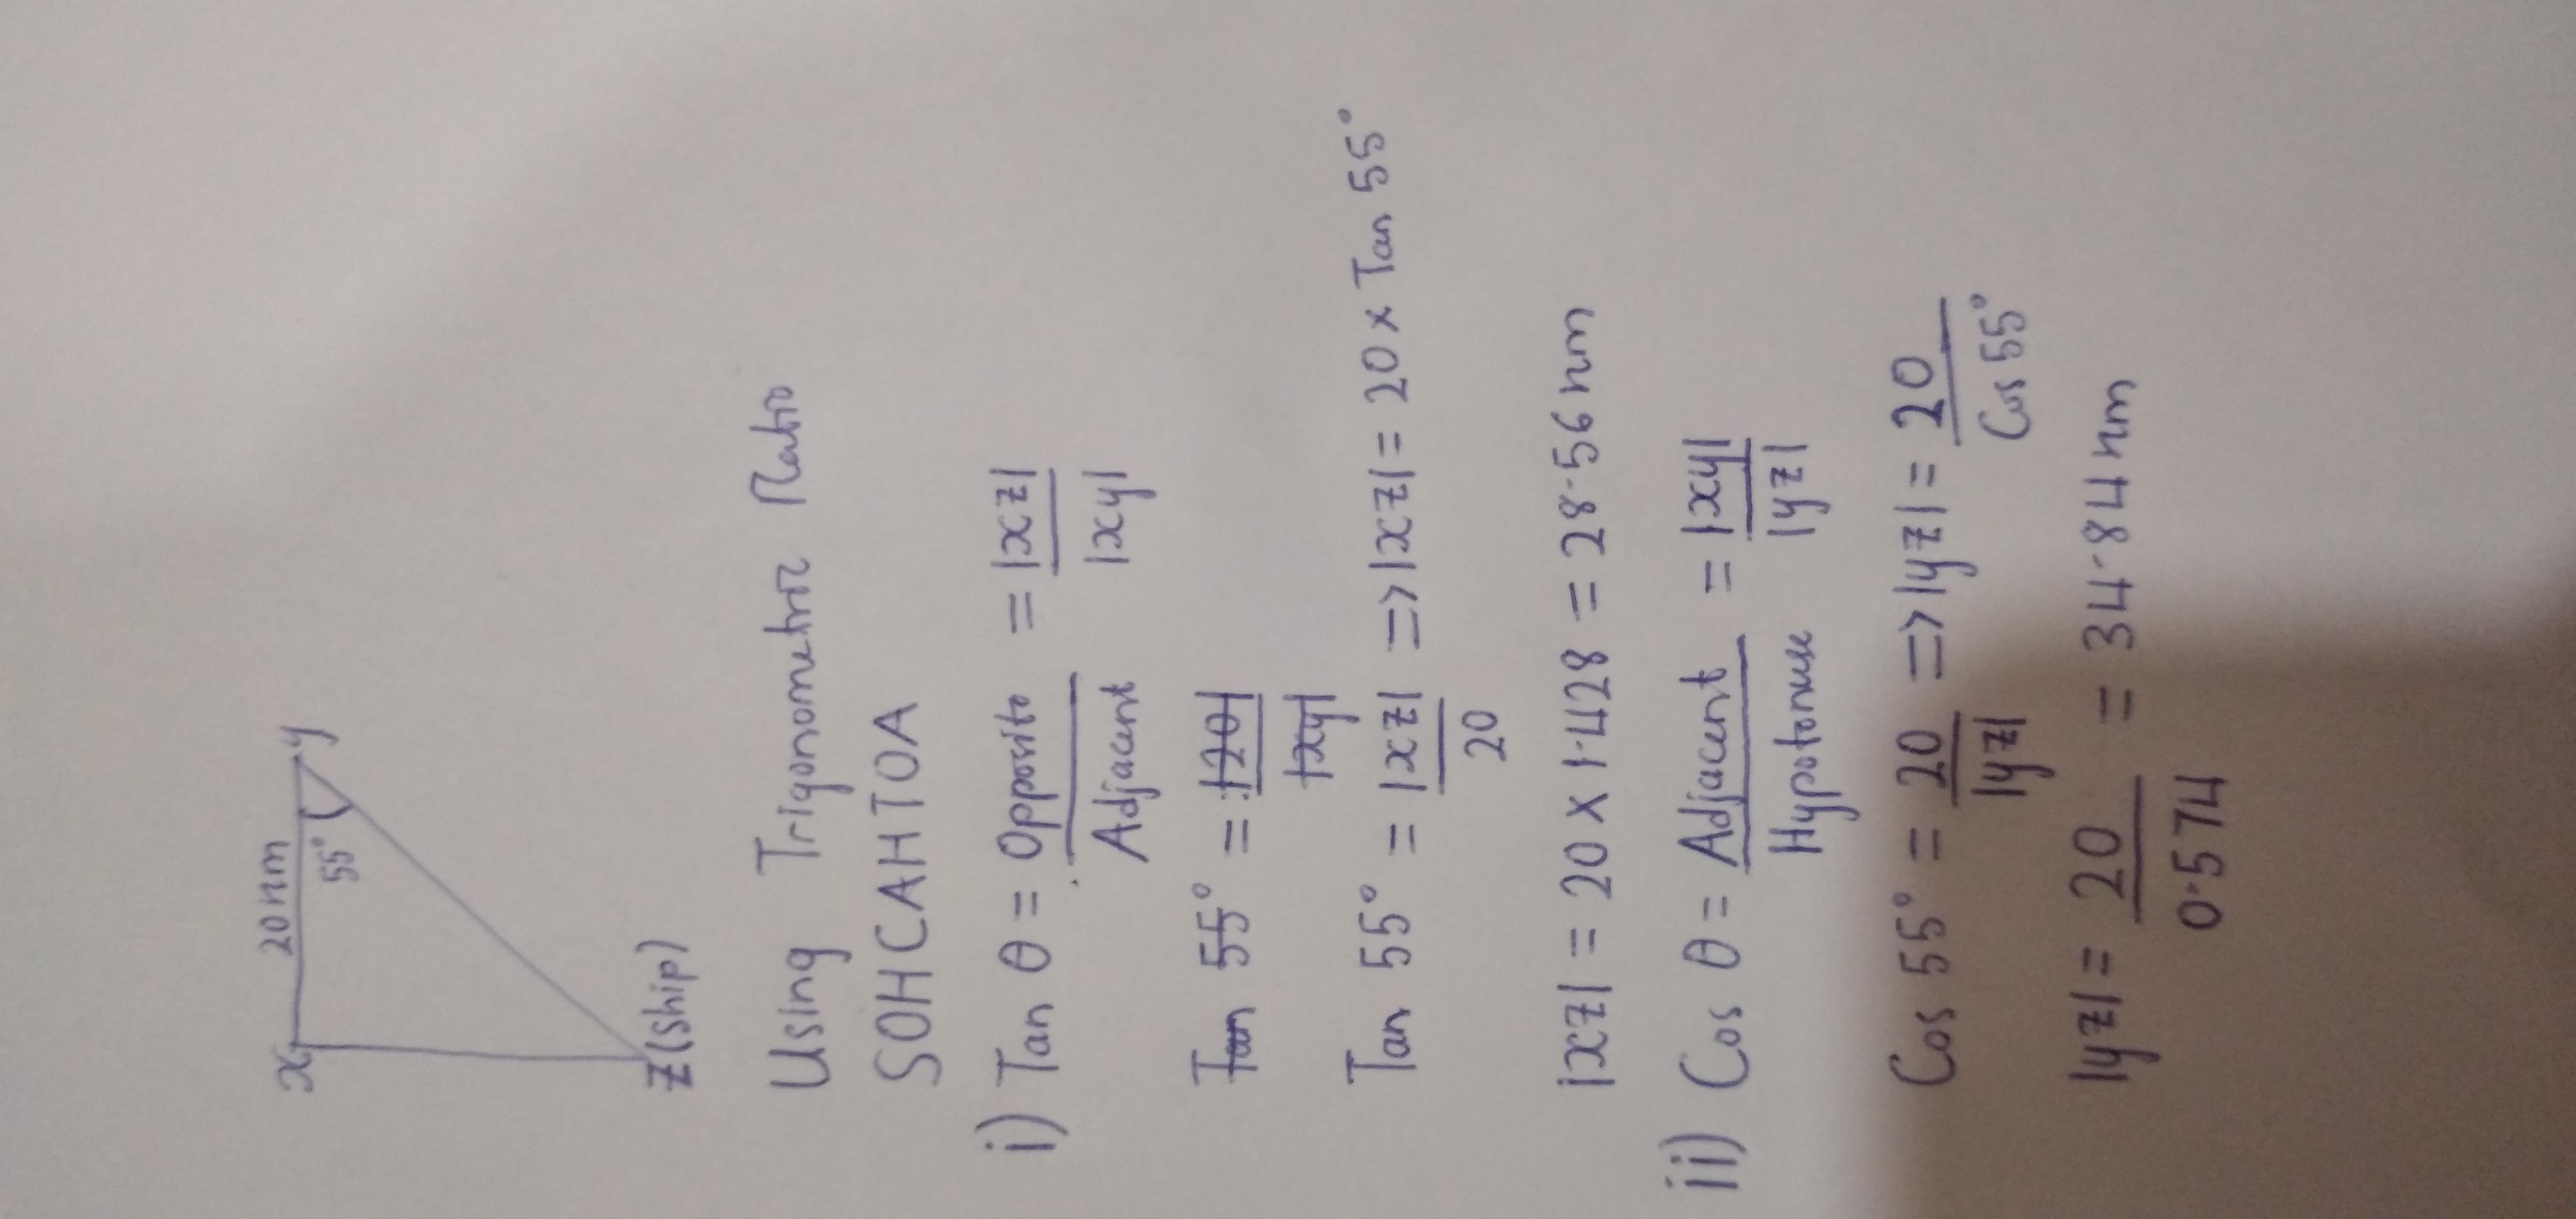 20nm
x 55° y
z (ship)
Using Trigonometric Ratio
SOHCAHTOA
i) Tan θ = Opposite / Adjacent = |xz| / |xy|
Tan 55° = |20| / |xy|
Tan 55° = |xz| / 20 => |xz| = 20 x Tan 55°
|xz| = 20 x 1.428 = 28.56 nm
ii) Cos θ = Adjacent / Hypotenuse = |xy| / |yz|
Cos 55° = 20 / |yz| => |yz| = 20 / Cos 55°
|yz| = 20 / 0.574 = 34.84 nm